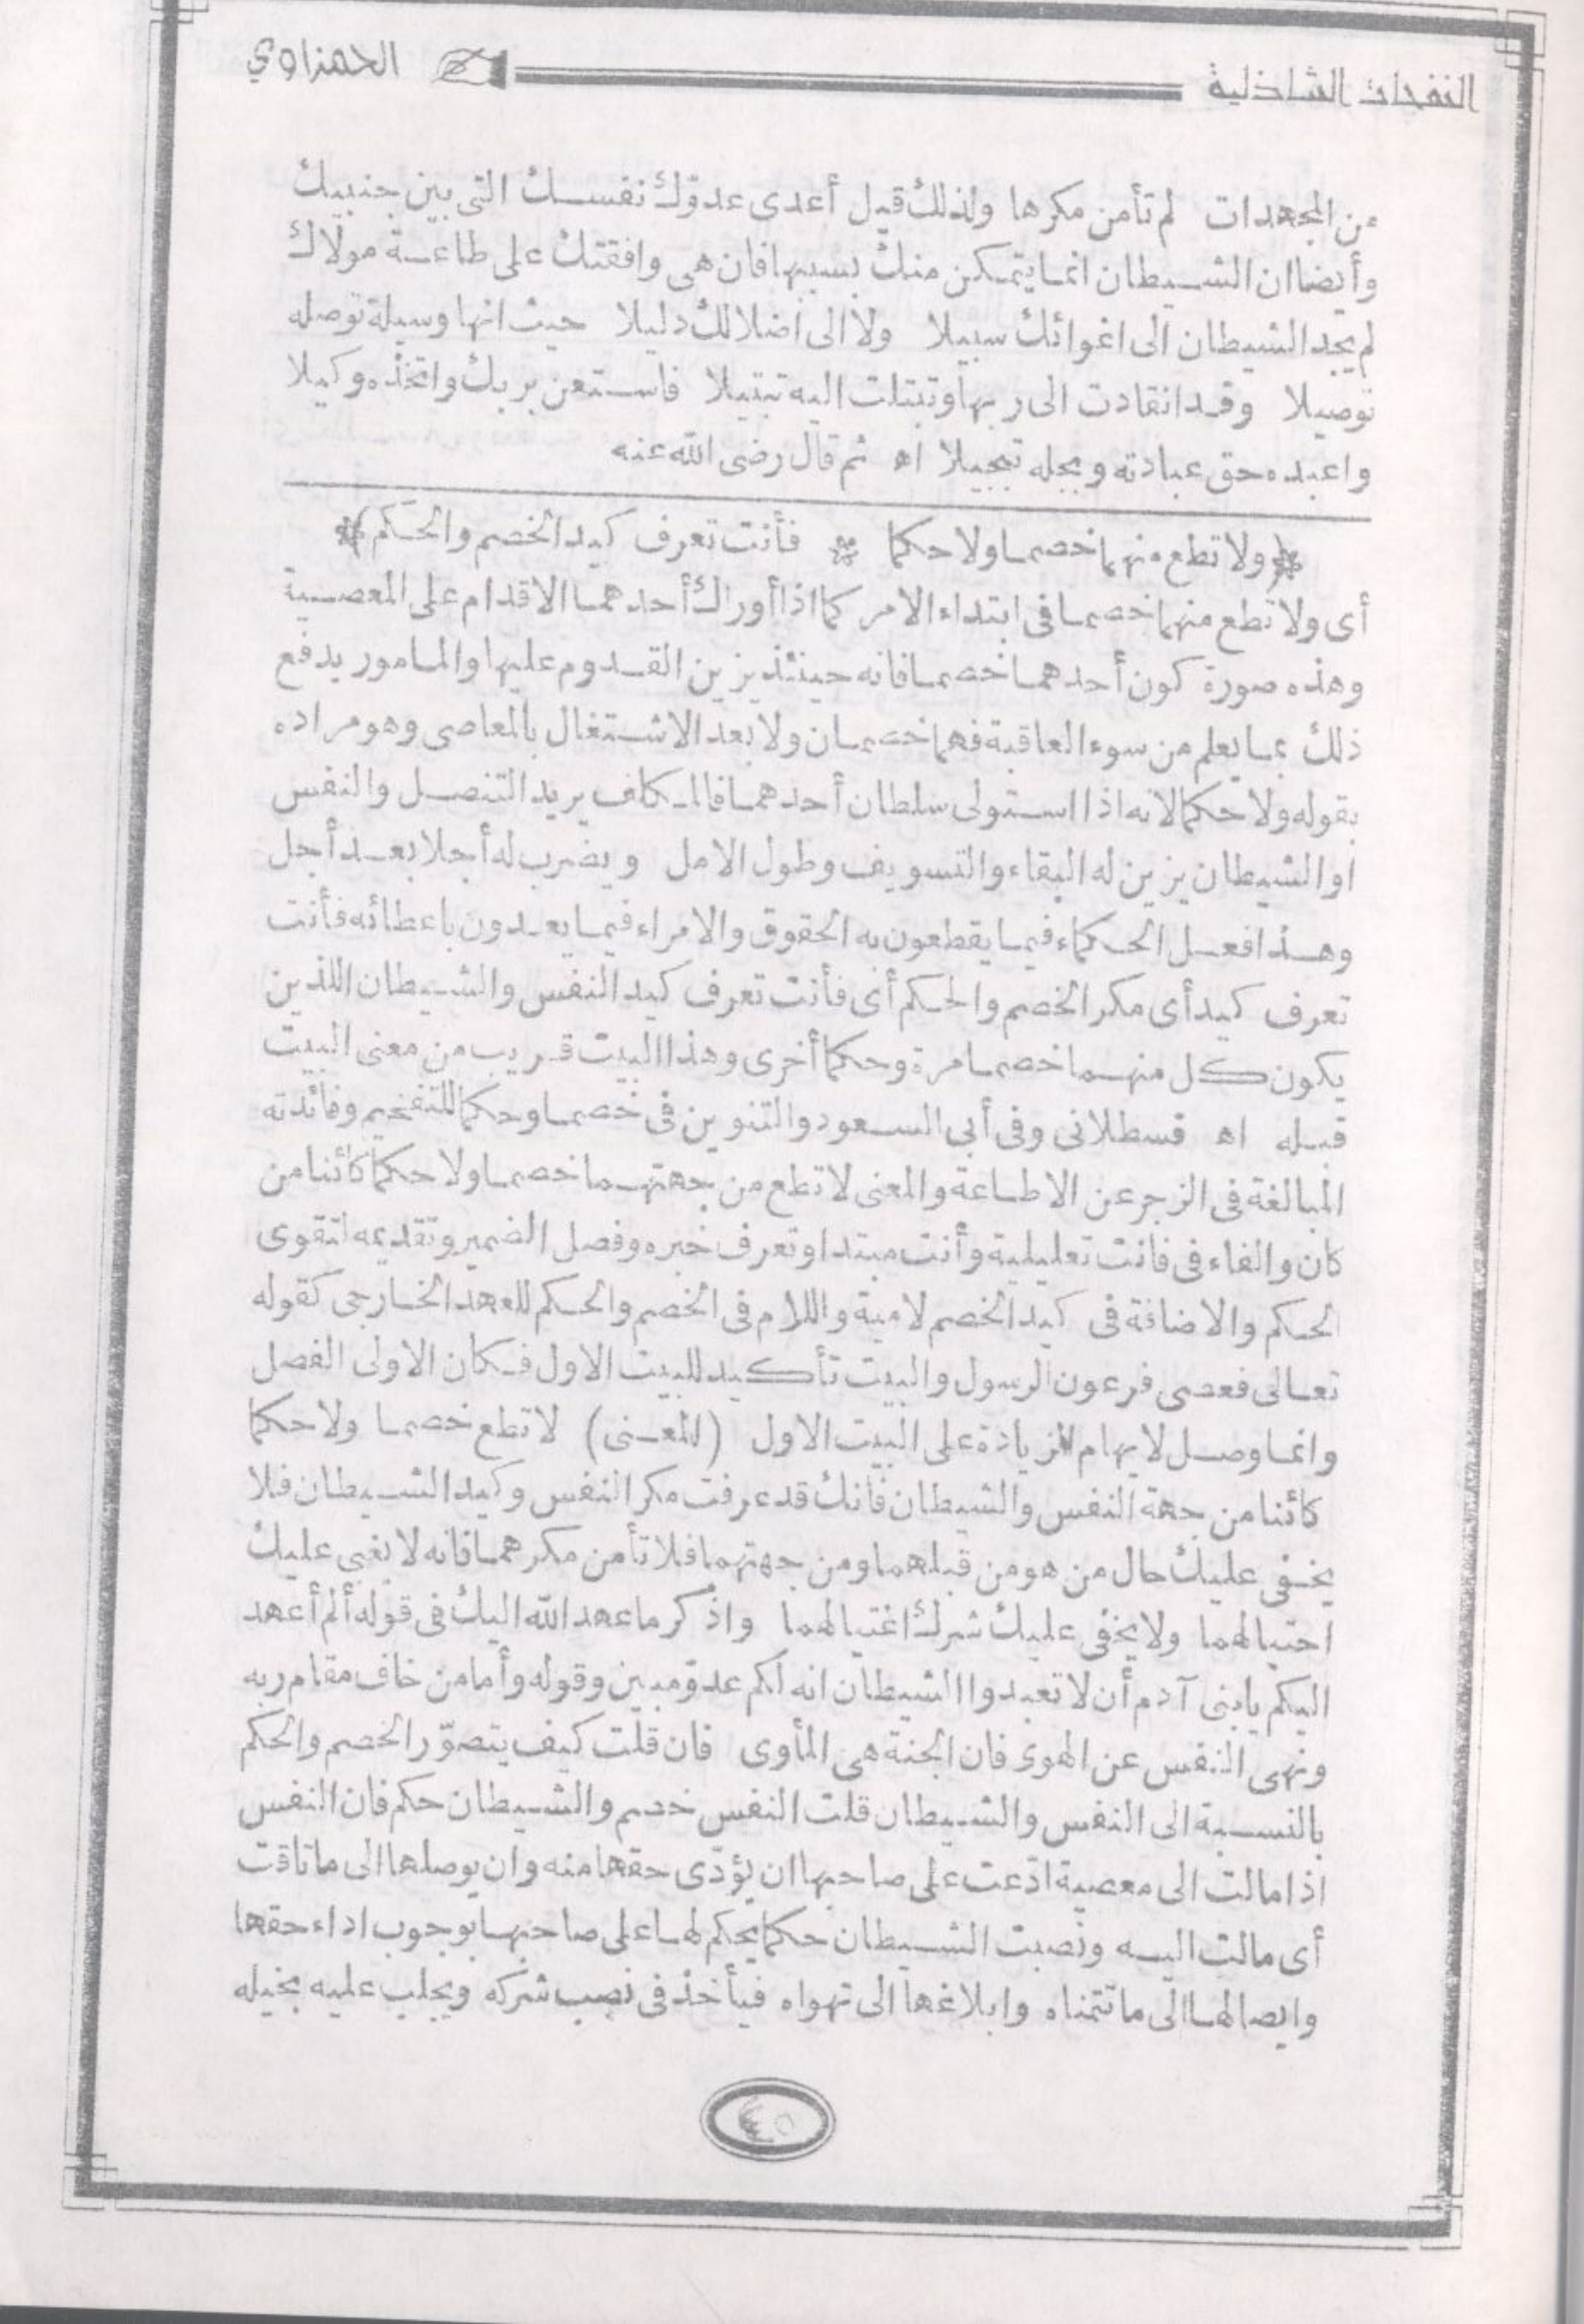 النفحات الشاذلية
الحمزاوي
من المجهدات لم تأمن مكرها ولذلك قيل أعدى عدوّك نفسك التى بين جنبيك
وأيضا ان الشيطان انما يتمكن منك بسببها فان هى وافقتك على طاعة مولاك
لم يجد الشيطان الى اغوائك سبيلا ولا الى اضلالك دليلا حيث انها وسيلة توصله
توصيلا وقد انقادت الى ربها وتبتلت اليه تبتيلا فاستعن بربك واتخذه وكيلا
واعبده حق عبادته وبجله تبجيلا اه ثم قال رضى الله عنه
﴿ولا تطع منهما خصما ولا حكما * فأنت تعرف كيد الخصم والحكم﴾
أى ولا تطع منهما خصما فى ابتداء الامر كما اذا أوراك أحدهما الاقدام على المعصية
وهذه صورة كون أحدهما خصما فانه حينئذ يزين القدوم عليها والمامور يدفع
ذلك بما يعلم من سوء العاقبة فهما خصمان ولا بعد الاشتغال بالمعاصى وهو مراده
بقوله ولا حكما لانه اذا استولى سلطان أحدهما فالمكلف يريد التنصل والنفس
او الشيطان يزين له البقاء والتسويف وطول الامل ويضرب له أجلا بعد أجل
وهذا فعل الحكماء فيما يقطعون به الحقوق والامراء فيما يعدون باعطائه فأنت
تعرف كيد أى مكر الخصم والحكم أى فأنت تعرف كيد النفس والشيطان اللذين
يكون كل منهما خصما مرة وحكما أخرى وهذا البيت قريب من معنى البيت
قبله اه قسطلانى وفى أبى السعود والتنوين فى خصما وحكما للتفخيم وفائدته
المبالغة فى الزجر عن الاطاعة والمعنى لا تطع من جهتهما خصما ولا حكما كائنا من
كان والفاء فى فانت تعليلية وأنت مبتدا وتعرف خبره وفصل الضمير وتقديمه لتقوى
الحكم والاضافة فى كيد الخصم لامية واللام فى الخصم والحكم للعهد الخارجى كقوله
تعالى فعصى فرعون الرسول والبيت تأكيد للبيت الاول فكان الاولى الفصل
وانما وصل لايهام الزيادة على البيت الاول (المعنى) لا تطع خصما ولا حكما
كائنا من جهة النفس والشيطان فانك قد عرفت مكر النفس وكيد الشيطان فلا
يخفى عليك حال من هو من قبلهما ومن جهتهما فلا تأمن مكرهما فانه لا يغبى عليك
احتيالهما ولا يخفى عليك شرك اغتيالهما واذكر ما عهد الله اليك فى قوله ألم أعهد
اليكم يابنى آدم أن لا تعبدوا الشيطان انه لكم عدوّ مبين وقوله وأما من خاف مقام ربه
ونهى النفس عن الهوى فان الجنة هى المأوى فان قلت كيف يتصوّر الخصم والحكم
بالنسبة الى النفس والشيطان قلت النفس خصم والشيطان حكم فان النفس
اذا مالت الى معصية ادّعت على صاحبها ان يؤدّى حقها منه وان يوصلها الى ما تاقت
أى مالت اليه ونصبت الشيطان حكما يحكم لها على صاحبها بوجوب اداء حقها
وايصالها الى ما تتمناه وابلاغها الى تهواه فيأخذ فى نصب شركه ويجلب عليه بخيله